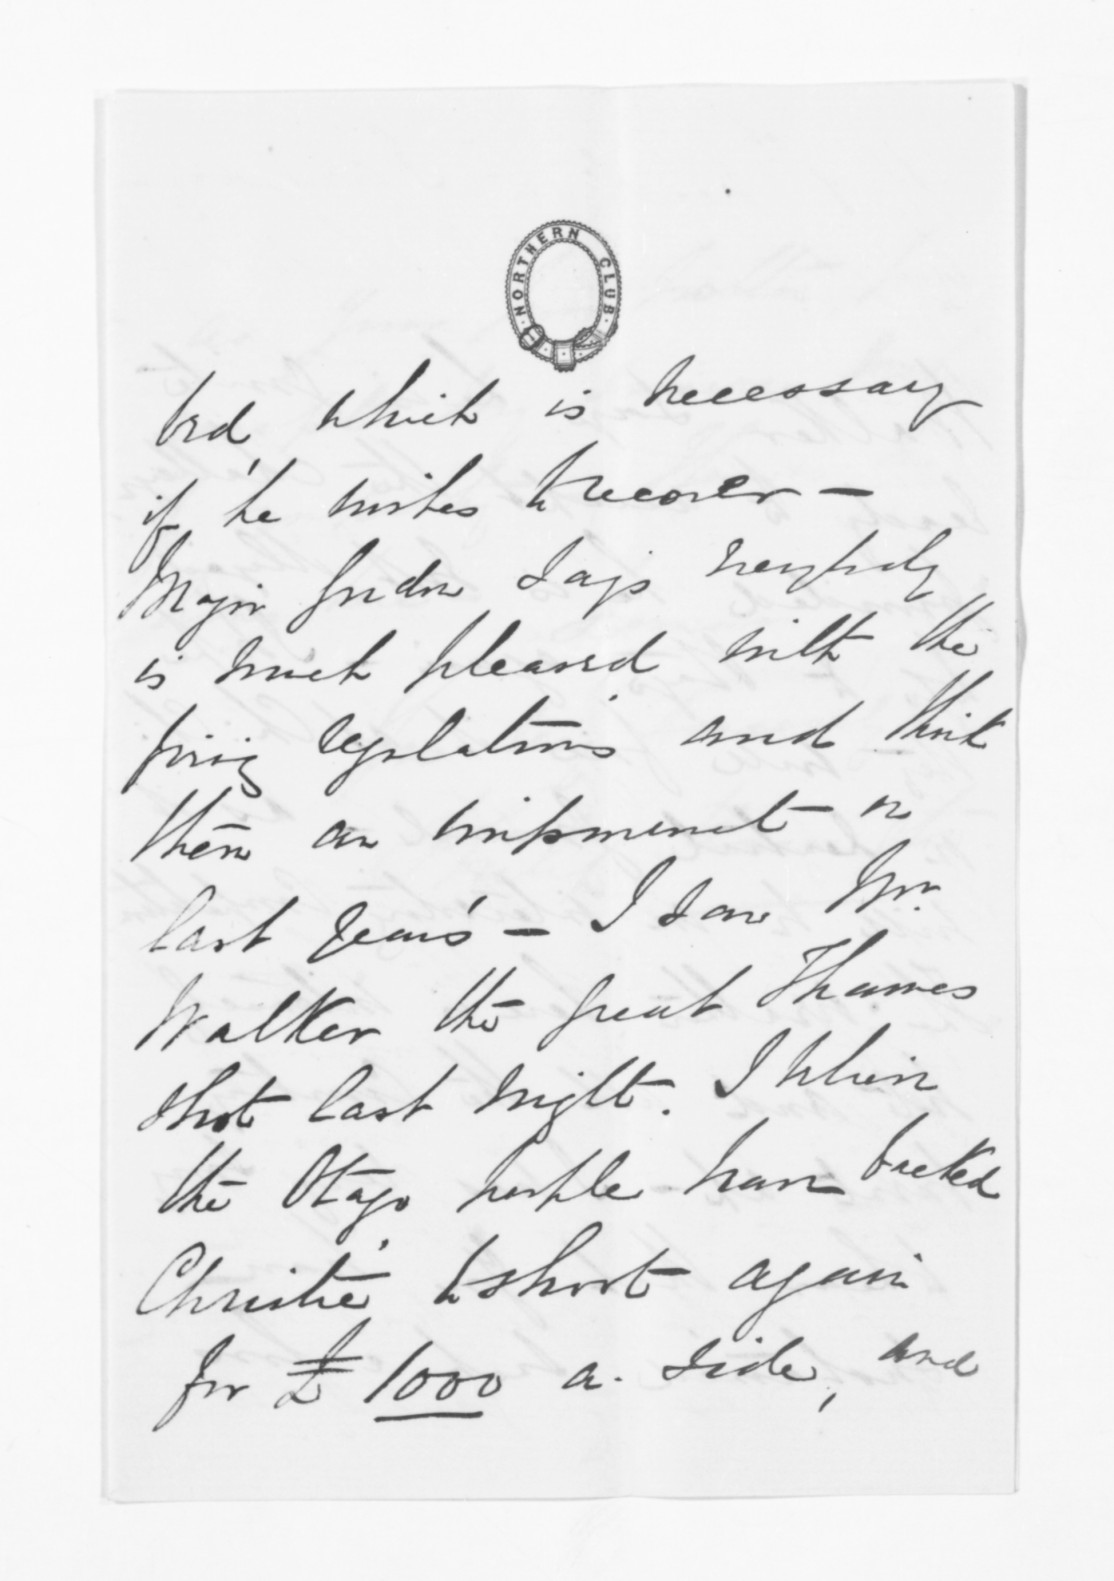 NORTHERN CLUB
bed, which is necessary
if he wishes to recover —
Major Gordon says everybody
is much pleased with the
firing regulations and think
them an improvement on
last year's — I saw Mr.
Walker the great Thames
shot last night. I believe
the Otago people have backed
Christie to shoot again
for £1000 a. side, and